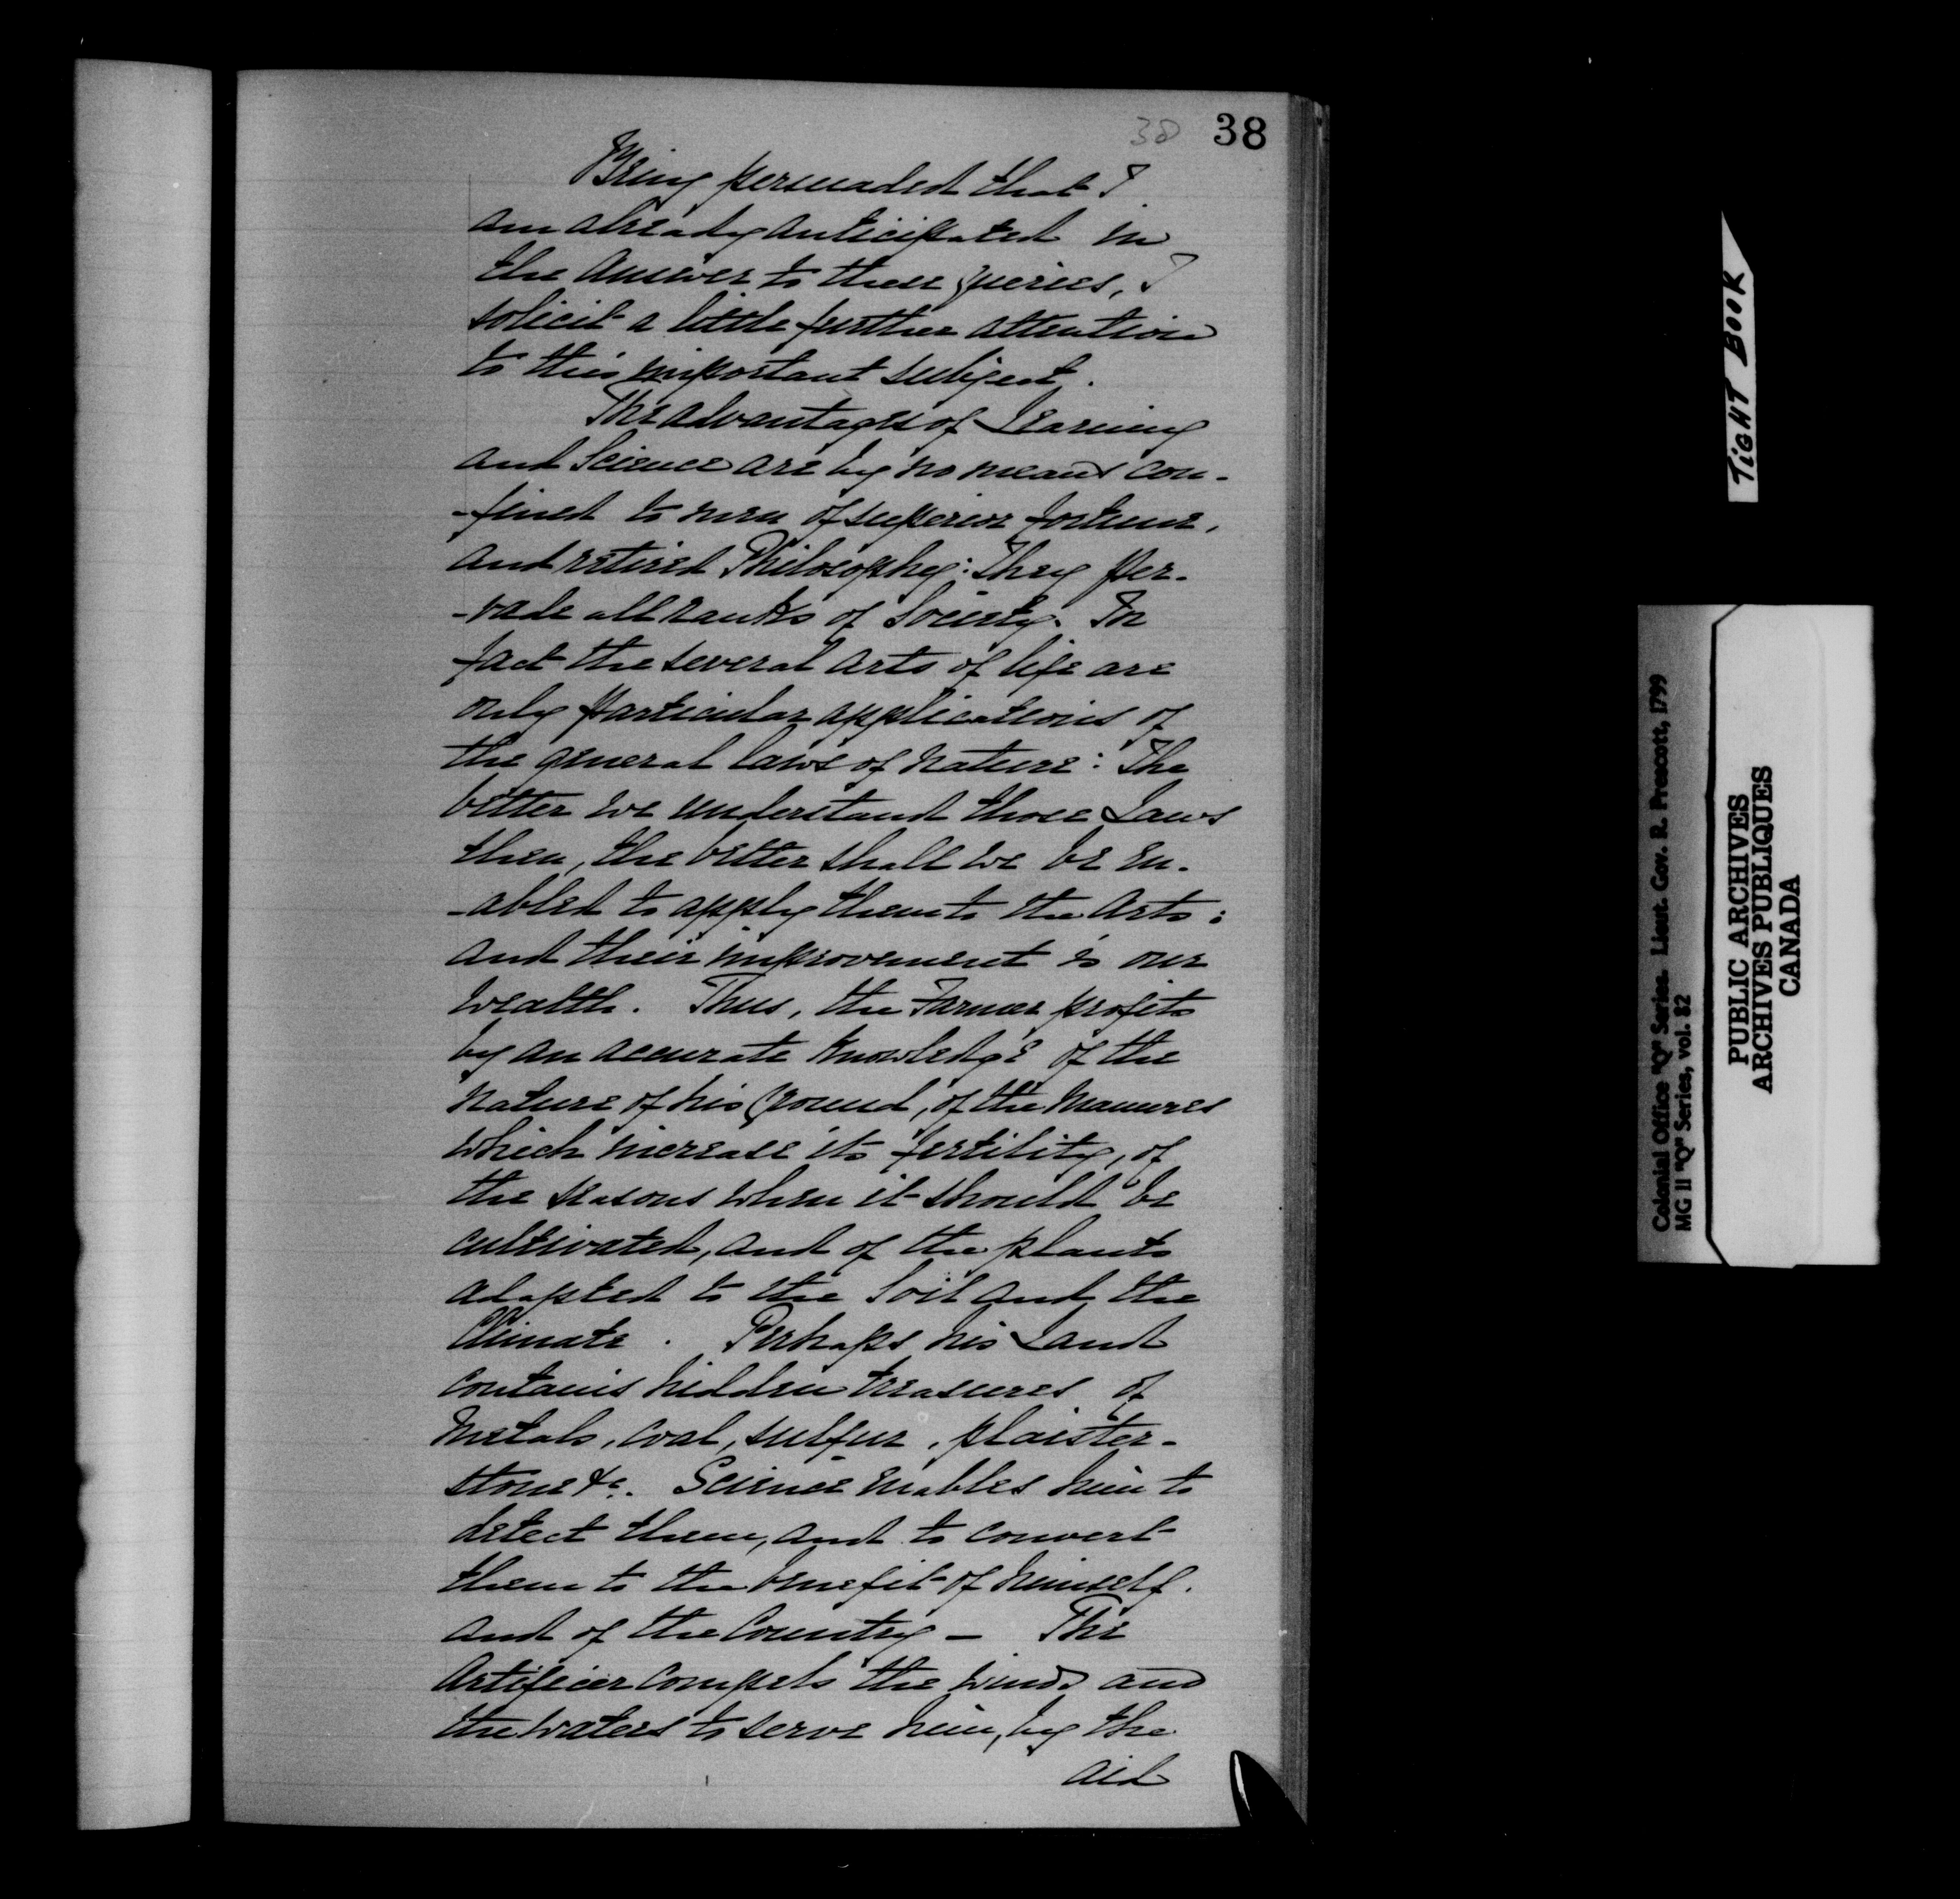 38 38
Being persuaded that I
am already anticipated in
the answer to these queries, I
solicit a little further attention
to this important subject.
The advantages of Learning
and Science are by no means con-
-fined to men of superior fortune,
and retired Philosophy: They per-
-vade all ranks of Society. In
fact the several arts of life are
only particular applications of
the general laws of nature: The
better we understand those Laws
then, the better shall we be en-
-abled to apply them to the Arts:
and their improvement is our
wealth. Thus, the Farmer profits
by an accurate knowledge of the
nature of his Ground, of the Manures
which increase its fertility, of
the seasons when it should be
cultivated, and of the plants
adapted to the Soil and the
Climate. Perhaps his Land
contains hidden treasures of
Metals, coal, sulfur, plaister-
stone &c. Science enables him to
detect them, and to convert
them to the benefit of himself.
and of the Country — The
Artificer compels the winds and
the waters to serve him, by the
aid
TIGHT BOOK
Colonial Office "Q" Series. Lieut. Gov. R. Prescott, 1799
MG 11 "Q" Series, vol. 82
PUBLIC ARCHIVES
ARCHIVES PUBLIQUES
CANADA